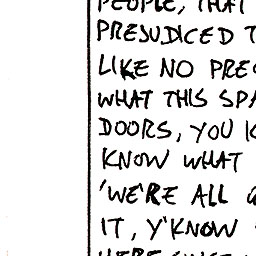 PEOPLE, THAT
PREJUDICED
LIKE NO
WHAT THIS
DOORS, YOU
KNOW WHAT
'WE'RE ALL
IT, Y'KNOW